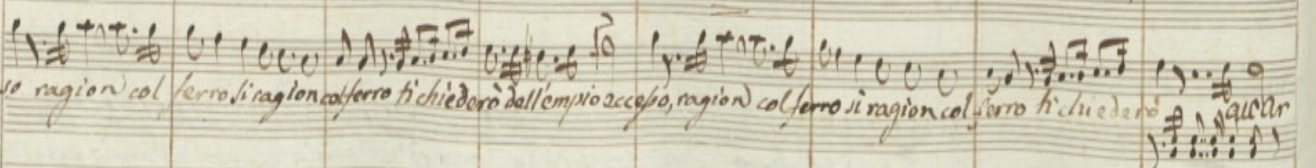 so ragion col ferro si ragion col ferro ti chiederò dell'empio eccesso, ragion col ferro sì ragion col ferro ti chiederò